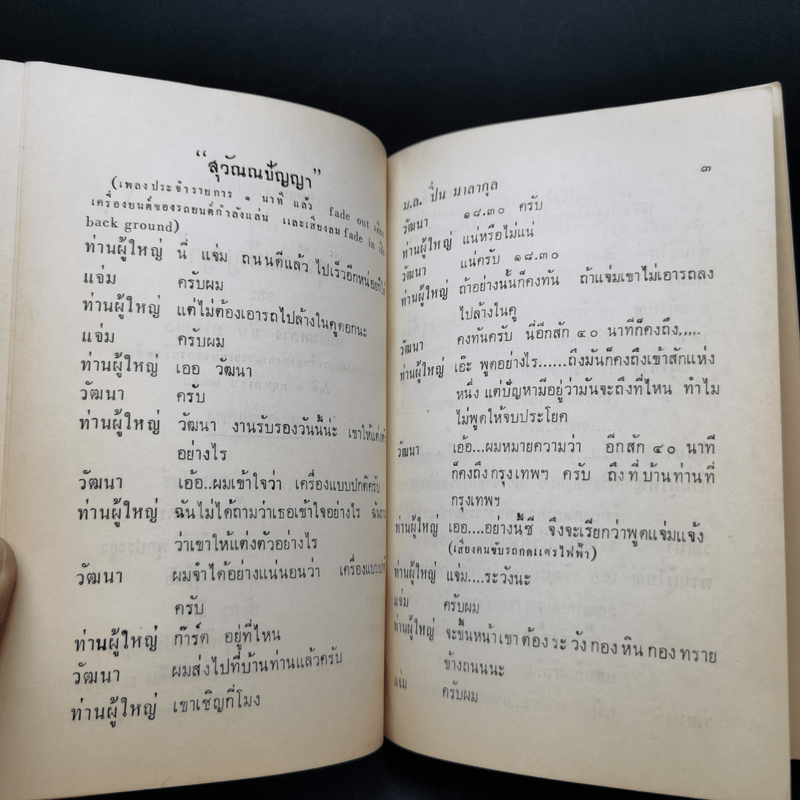 “สุวัณณปัญญา”
(เพลงประจำรายการ ๑ นาที แล้ว fade out
เครื่องยนต์ของรถยนต์กำลังแล่น และเสียงลม fade in
back ground)
ท่านผู้ใหญ่ นี่ แจ่ม ถนนดีแล้ว ไปเร็วอีกหน่อย
แจ่ม ครับผม
ท่านผู้ใหญ่ แต่ไม่ต้องเอารถไปล้างในคูดอกนะ
แจ่ม ครับผม
ท่านผู้ใหญ่ เออ วัฒนา
วัฒนา ครับ
ท่านผู้ใหญ่ วัฒนา งานรับรองวันนี้น่ะ เขาให้แต่ง
อย่างไร
วัฒนา เอ้อ..ผมเข้าใจว่า เครื่องแบบปกติครับ
ท่านผู้ใหญ่ ฉันไม่ได้ถามว่าเธอเข้าใจอย่างไร
ว่าเขาให้แต่งตัวอย่างไร
วัฒนา ผมจำได้อย่างแน่นอนว่า เครื่องแบบ
ครับ
ท่านผู้ใหญ่ ก๊าร์ด อยู่ที่ไหน
วัฒนา ผมส่งไปที่บ้านท่านแล้วครับ
ท่านผู้ใหญ่ เขาเชิญกี่โมง
ม.ล. ปิ่น มาลากุล ๓
วัฒนา ๑๘.๓๐ ครับ
ท่านผู้ใหญ่ แน่หรือไม่แน่
วัฒนา แน่ครับ ๑๘.๓๐
ท่านผู้ใหญ่ ถ้าอย่างนั้นก็คงทัน ถ้าแจ่มเขาไม่เอารถลง
ไปล้างในคู
วัฒนา คงทันครับ นี่อีกสัก ๔๐ นาทีก็คงถึง.....
ท่านผู้ใหญ่ เอ๊ะ พูดอย่างไร....ถึงมันก็คงถึงเข้าสักแห่ง
หนึ่ง แต่ปัญหามีอยู่ว่ามันจะถึงที่ไหน ทำไม
ไม่พูดให้จบประโยค
วัฒนา เอ้อ...ผมหมายความว่า อีกสัก ๔๐ นาที
ก็คงถึงกรุงเทพฯ ครับ ถึงที่บ้านท่านที่
กรุงเทพฯ
ท่านผู้ใหญ่ เออ...อย่างนี้ซี จึงจะเรียกว่าพูดแจ่มแจ้ง
(เสียงคนขับรถกดแตรไฟฟ้า)
ท่านผู้ใหญ่ แจ่ม....ระวังนะ
แจ่ม ครับผม
ท่านผู้ใหญ่ จะขึ้นหน้าเขาต้องระวังกองหินกองทราย
ข้างถนนนะ
แจ่ม ครับผม